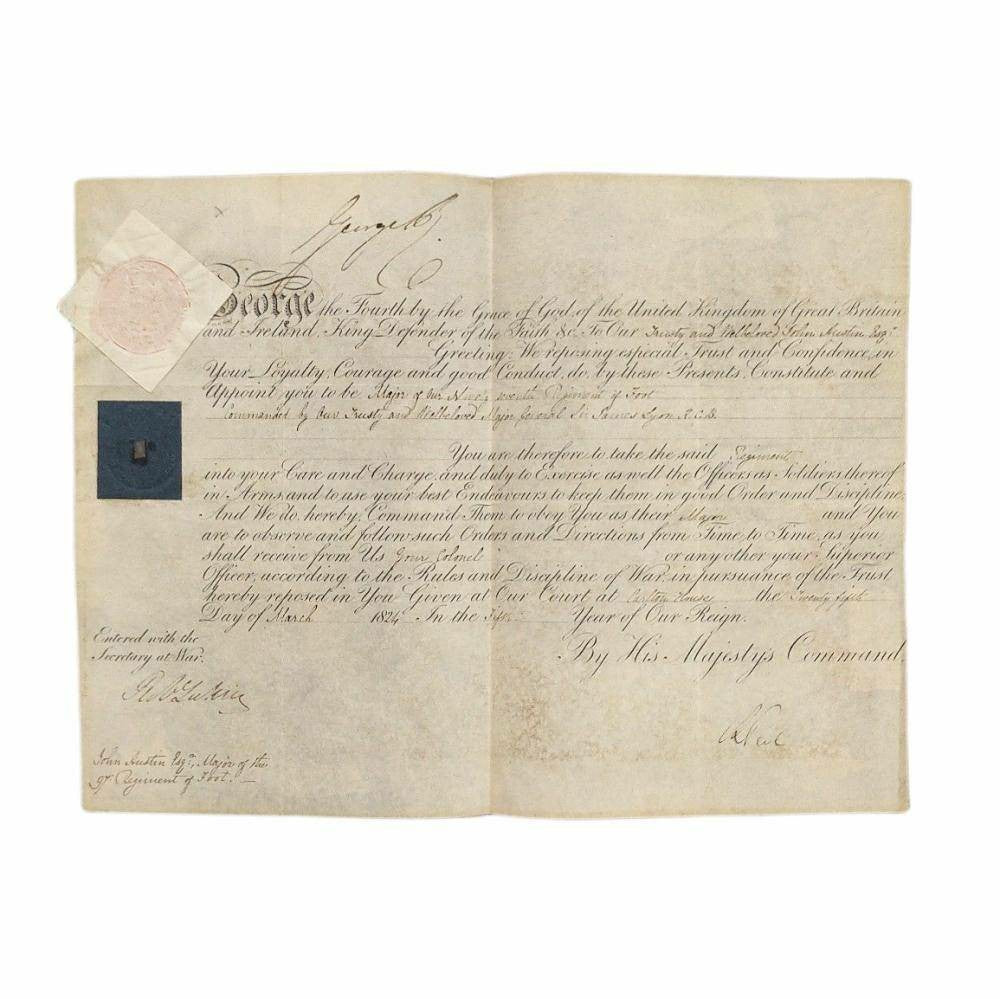 George R.
George the Fourth by the Grace of God, of the United Kingdom of Great Britain
and Ireland, King, Defender of the Faith &c. To Our Trusty and Welbeloved John Austin Esqr.
Greeting: We reposing especial Trust and Confidence, in
Your Loyalty, Courage and good Conduct, do, by these Presents, Constitute and
Appoint you to be Major of Our Ninety seventh Regiment of Foot
Commanded by Our Trusty and Welbeloved Major General Sir James Lyon K.C.B.
You are therefore to take the said Regiment
into your Care and Charge, and duly to Exercise as well the Officers as Soldiers thereof
in Arms, and to use your best Endeavours to keep them in good Order and Discipline.
And We do, hereby, Command Them to obey You as their Major and You
are to observe and follow such Orders and Directions from Time to Time, as you
shall receive from Us Your Colonel or any other your Superior
Officer, according to the Rules and Discipline of War, in pursuance of the Trust
hereby reposed in You Given at Our Court, at Carlton House the Twenty fifth
Day of March 1824 In the Fifth Year of Our Reign.
By His Majesty's Command.
Entered with the
Secretary at War.
John Austin Esqr., Major of the
97 Regiment of Foot.